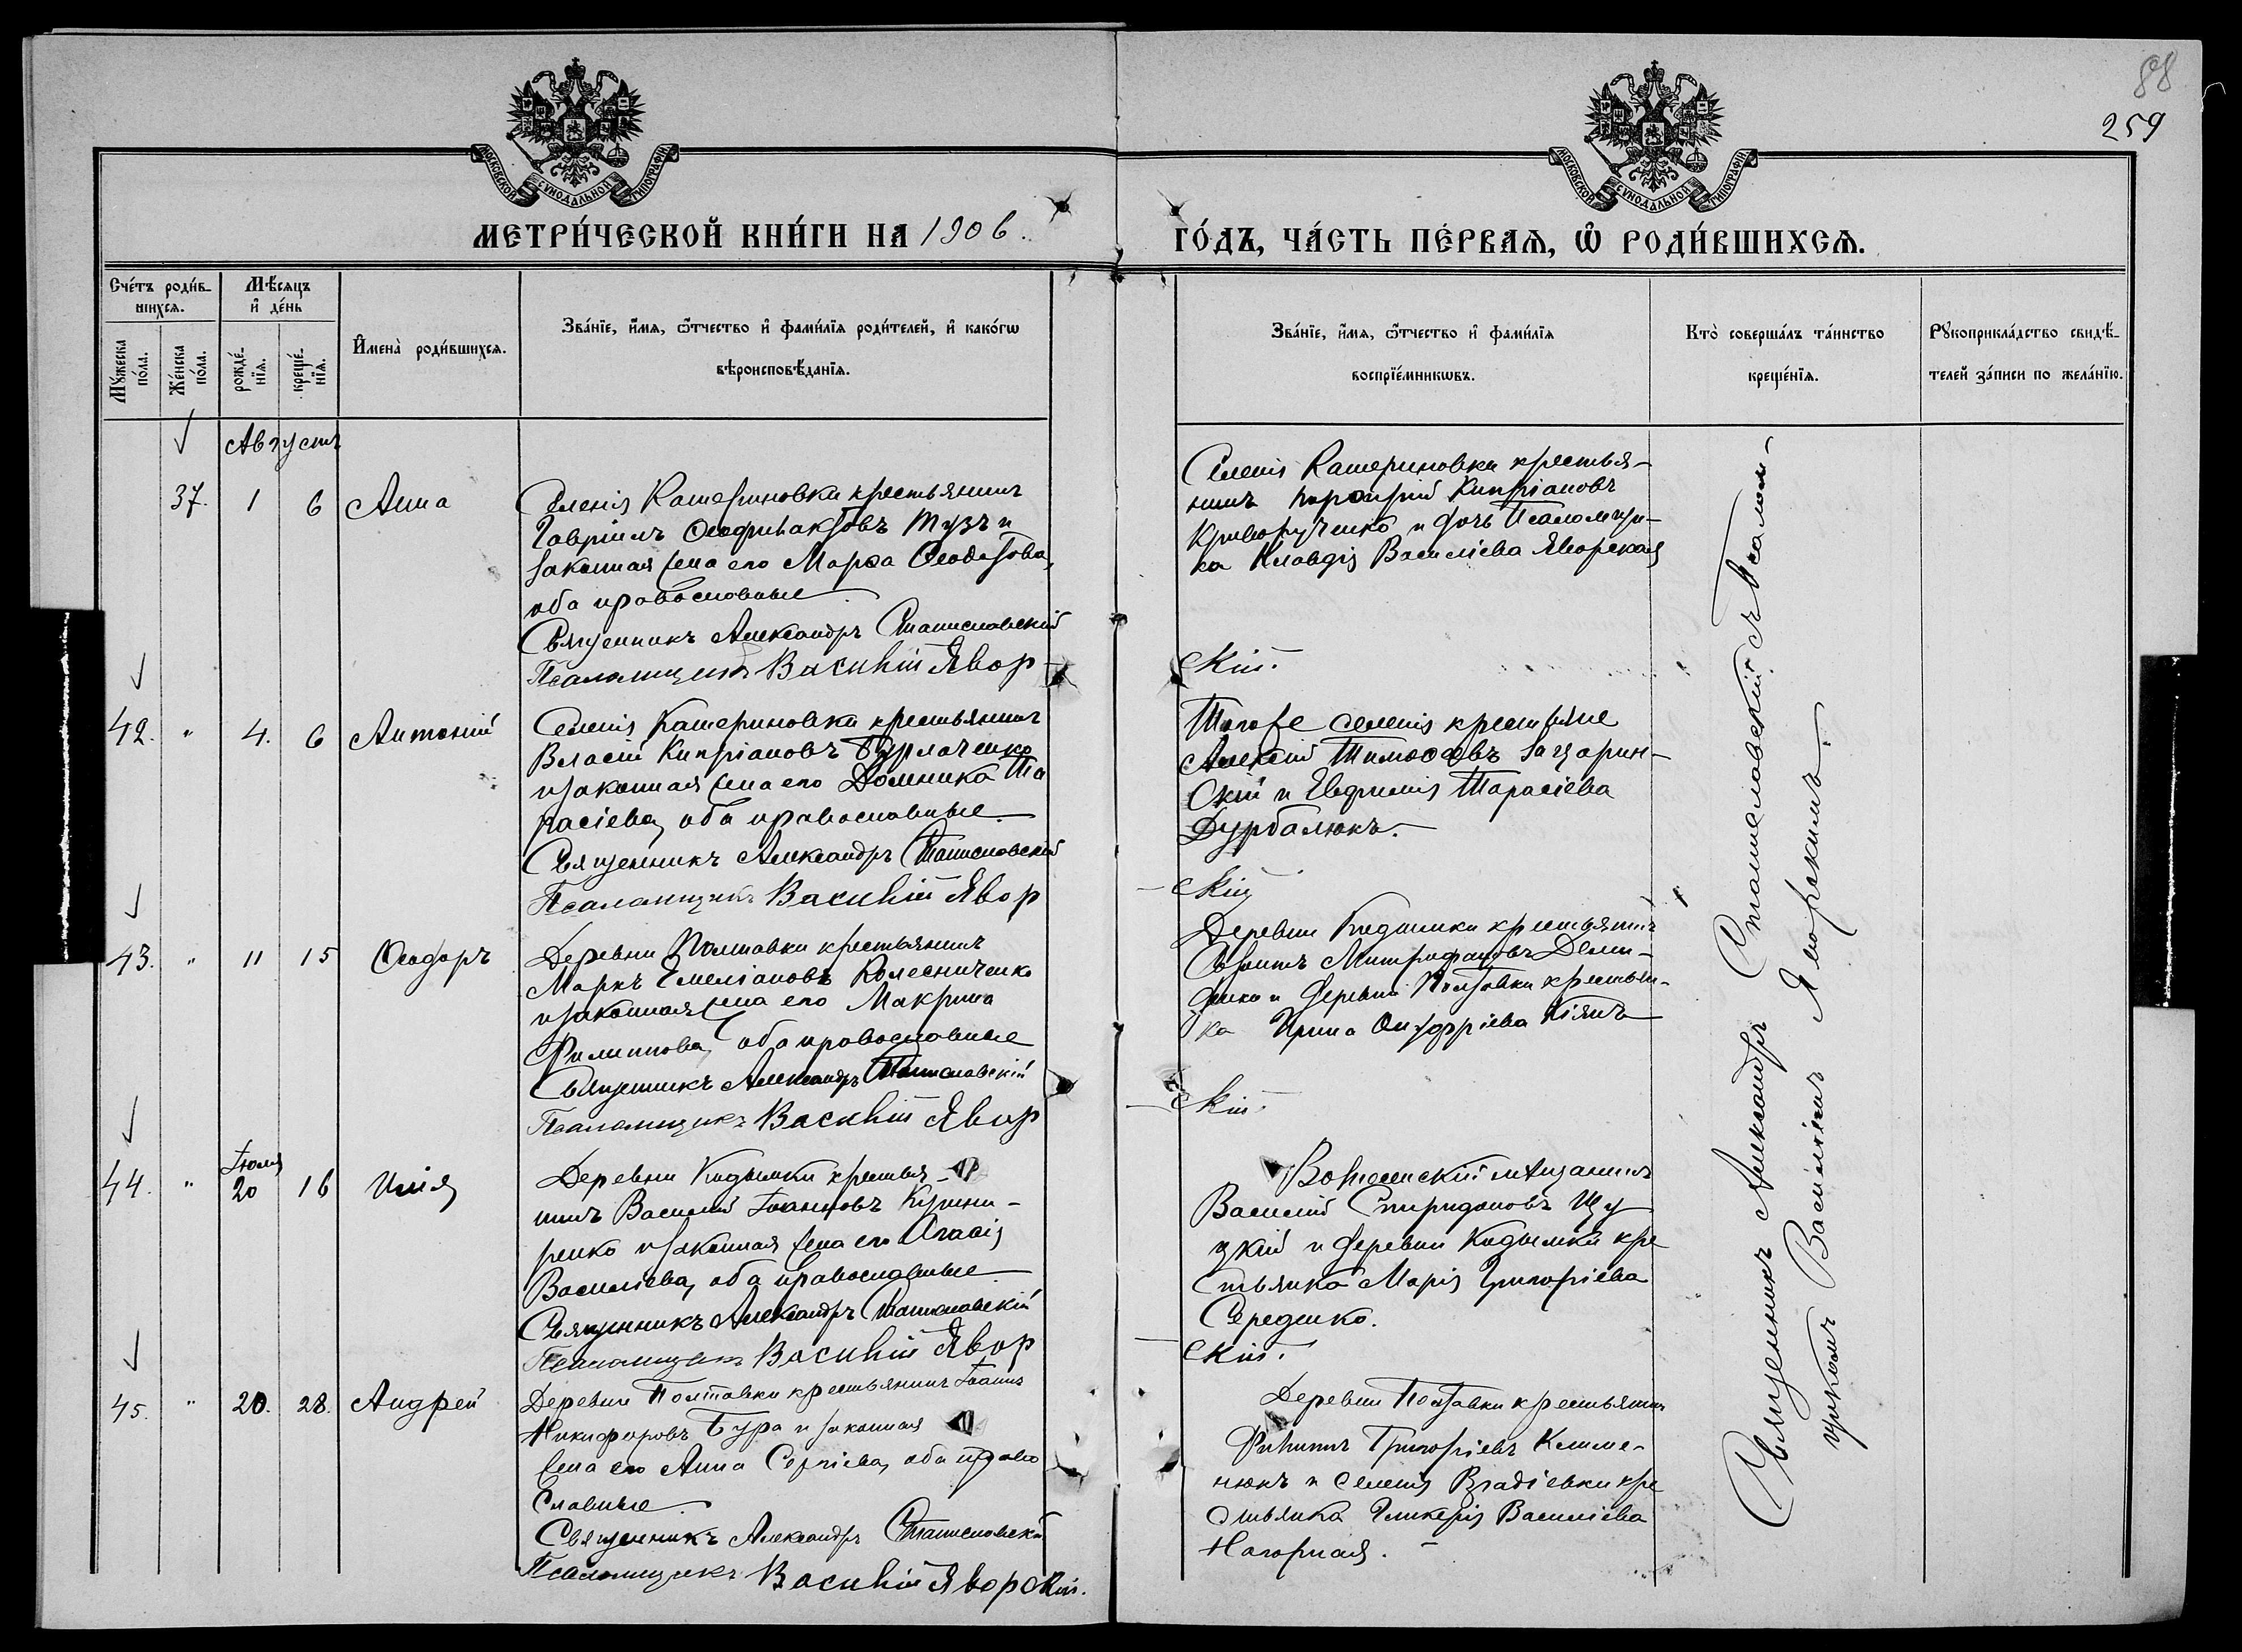 88
259
МОСКОВСКОЙ СѴНОДАЛЬНОЙ ТИПОГРАФІИ
МОСКОВСКОЙ СѴНОДАЛЬНОЙ ТИПОГРАФІИ
МЕТРИ́ЧЕСКОЙ КНИ́ГИ НА 1906.
ГО́ДЪ, ЧА́СТЬ ПЕ́РВАѦ, Ѽ РОДИ́ВШИХСѦ.
Сче́тъ роди́в-
шихсѧ.
Мѣ́сѧцъ
и҆ де́нь
Мꙋ́жеска по́ла.
Же́нска по́ла.
рожде́-нїѧ.
креще́-нїѧ.
И҆мена̀ роди́вшихсѧ.
Зва́нїе, и҆́мѧ, ѻ҆́тчество и҆ фами́лїѧ роди́телей, и҆ како́гѡ
вѣроисповѣ́данїѧ.
Зва́нїе, и҆́мѧ, ѻ҆́тчество и҆ фами́лїѧ
воспрїе́мникѡвъ.
Кто̀ соверша́лъ та́инство
креще́нїѧ.
Рꙋкоприкла́дство свидѣ́-
телей за́писи по жела́нїю.
Августъ
37. 1 6 Анна
Селенія Катериновки крестьянинъ
Гавріилъ Ѳеофилактовъ Тузъ и
законная жена его Марѳа Ѳеодотова,
оба православные
Священникъ Александръ Станиславскій
Псаломщикъ Василій Явор-
Селенія Катериновки крестья-
нинъ Порфирій Кипріановъ
Криворученко и дочь Псаломщи-
ка Клавдія Василіева Яворская
скій.
42. " 4. 6 Антоній
Селенія Катериновки крестьянинъ
Власій Кипріановъ Бурлаченко
и законная жена его Домника Та
расіева, оба православные
Священникъ Александръ Станиславскій
Псаломщикъ Василій Явор
Того же селенія крестьяне
Алексій Тимоѳеевъ Загарин-
скій и Евфимія Тарасіева
Дурбалюкъ.
скій
43. " 11 15 Ѳеодоръ
Деревни Полтавки крестьянинъ
Маркъ Емеліановъ Колесниченко
и законная жена его Макрина
Филиппова, оба православные
Священникъ Александръ Станиславскій
Псаломщикъ Василій Явор
Деревни Кидымки крестьянинъ
Митрофановъ Деми-
денко и деревни Полтавки крестьян-
ка Ирина Онуфріева Кіянъ
скій.
Іюля
44. " 20 16 Илія
Деревни Кидымки крестья-
нинъ Василій Іоанновъ Кушни-
ренко и законная жена его Агаѳія
Василіева, оба православные
Священникъ Александръ Станиславскій
Псаломщикъ Василій Явор
Вознесенскій мѣщанинъ
Василій Спиридоновъ Щу
цкій и деревни Кидымки кре
стьянка Марія Григоріева
Середенко.
скій.
45. " 20. 28. Андрей
Деревни Полтавки крестьянинъ Іоаннъ
Никифоровъ Бура и законная
жена его Анна Сергіева, оба право
славные
Священникъ Александръ Станиславскій
Псаломщикъ Василій Яворскій.
Деревни Полтавки крестьянинъ
Филиппъ Григоріевъ Климе-
нюкъ и селенія Врадіевки кре
стьянка Гликерія Василіева
Нагорная.
Священникъ Александръ Станиславскій съ Псалом-
щикомъ Василіемъ Яворскимъ.